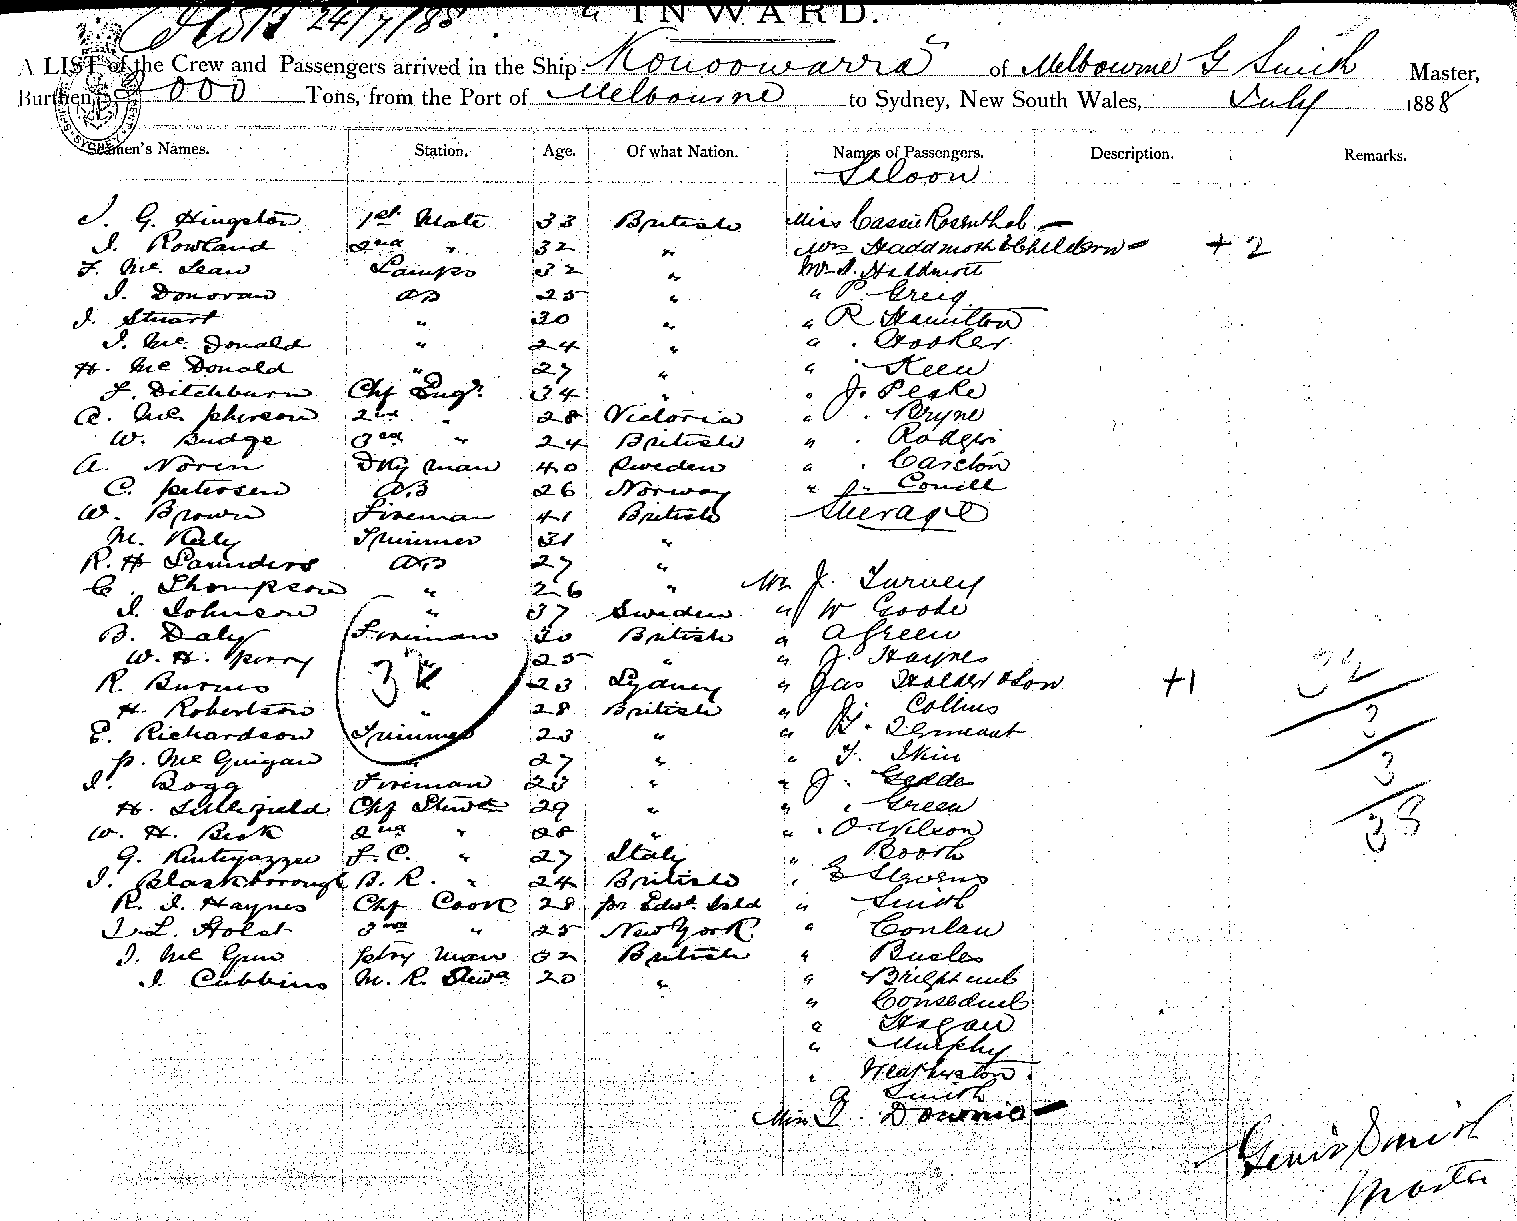 24/7/88 " INWARD.
A LIST of the Crew and Passengers arrived in the Ship Konoowarra of Melbourne G Smith Master,
Burthen 2000 Tons, from the Port of Melbourne to Sydney, New South Wales, July 1888
Seamen's Names. Station. Age. Of what Nation. Names of Passengers. Description. Remarks.
Saloon
J. G. Hingston 1st Mate 33 British Miss Cassie Rosenthal —
J. Rowland 2nd " 32 " Mrs Haddmott & Children — + 2
F. Mc. Lean Lamps 32 " Mr J. Haddmott
J. Donovan AB 25 " " P. Greig
J. Stuart " 30 " " R Hamilton
J. Mc. Donald " 24 " " Hooker
H. Mc Donald " 27 " " Keen
F. Ditchburn Chf Engr. 34 " " J. Peake
A. Mc. pherson 2nd " 28 Victoria " Bryne
W. Budge 3rd " 24 British " Rodgers
A. Noren Dky man 40 Sweden " Carelton
C. petersen AB 26 Norway " J. Cowell
W. Brown Fireman 41 British Steerage
M. Raly Trimmer 31 "
R. H Saunders AB 27 "
C. Thompson " 26 " Mr J. Turvey
J. Johnson " 37 Sweden " W Goode
B. Daly Fireman 30 British " A Green
W. H. perry " 25 " " J. Haynes 32
R. Burns " 23 Sydney " Jas Holder & Son +1
H. Robertson " 28 British " J. Collins 3
E. Richardson Trimmer 23 " "
p. Mc Guigan " 27 " " T. Skin 3
J. Bogg Fireman 23 " " J. Geddes
H. Littlefield Chf Stewd 29 " " Green 38
W. H. Beek 2nd " 28 " " O. Wilson
G. F. C. " 27 Italy " Booth
J. Blackborough B. R. " 24 British " E Stevens
R. J. Haynes Chf Cook 28 pr Edwd. Isld " Smith
J. L. Holst 2nd " 25 New York " Conlan
J. Mc Gun ptry man 32 British "
J. Cubbins M. R. Stewd 20 " "
"
" Hogan
" Murphy
" Weatherston
G Smith
Miss J. Downie —
Smith
Master